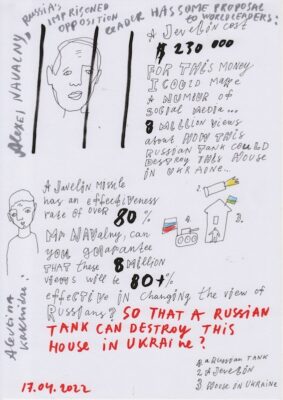 RUSSIA'S IMPRISONED OPPOSITION LEADER HAS SOME PROPOSAL TO WORLD LEADERS:
ALEXEI NAVALNY,
A Javelin cost
$ 230 000
FOR THIS MONEY
I COULD MAKE
A NUMBER OF
SOCIAL MEDIA...
8 MILLION VIEWS
about HOW THIS
RUSSIAN TANK COULD
DESTROY THIS HOUSE
IN UKRAINE...
A JAVELIN MISSLE
has an EFFECTIVENESS
rate of over 80 %
MR NAVALNY, can
you guarantee
THAT these 8 Million
views will be 80+%
effective in changing the view of
Russians? SO THAT A RUSSIAN
TANK CAN DESTROY THIS
HOUSE IN UKRAINE?
2.
1.
3.
Alevtina
Kakhidze:
1. A RUSSIAN TANK
2. A JAVELIN
3. HOUSE IN UKRAINE
17.04.2022